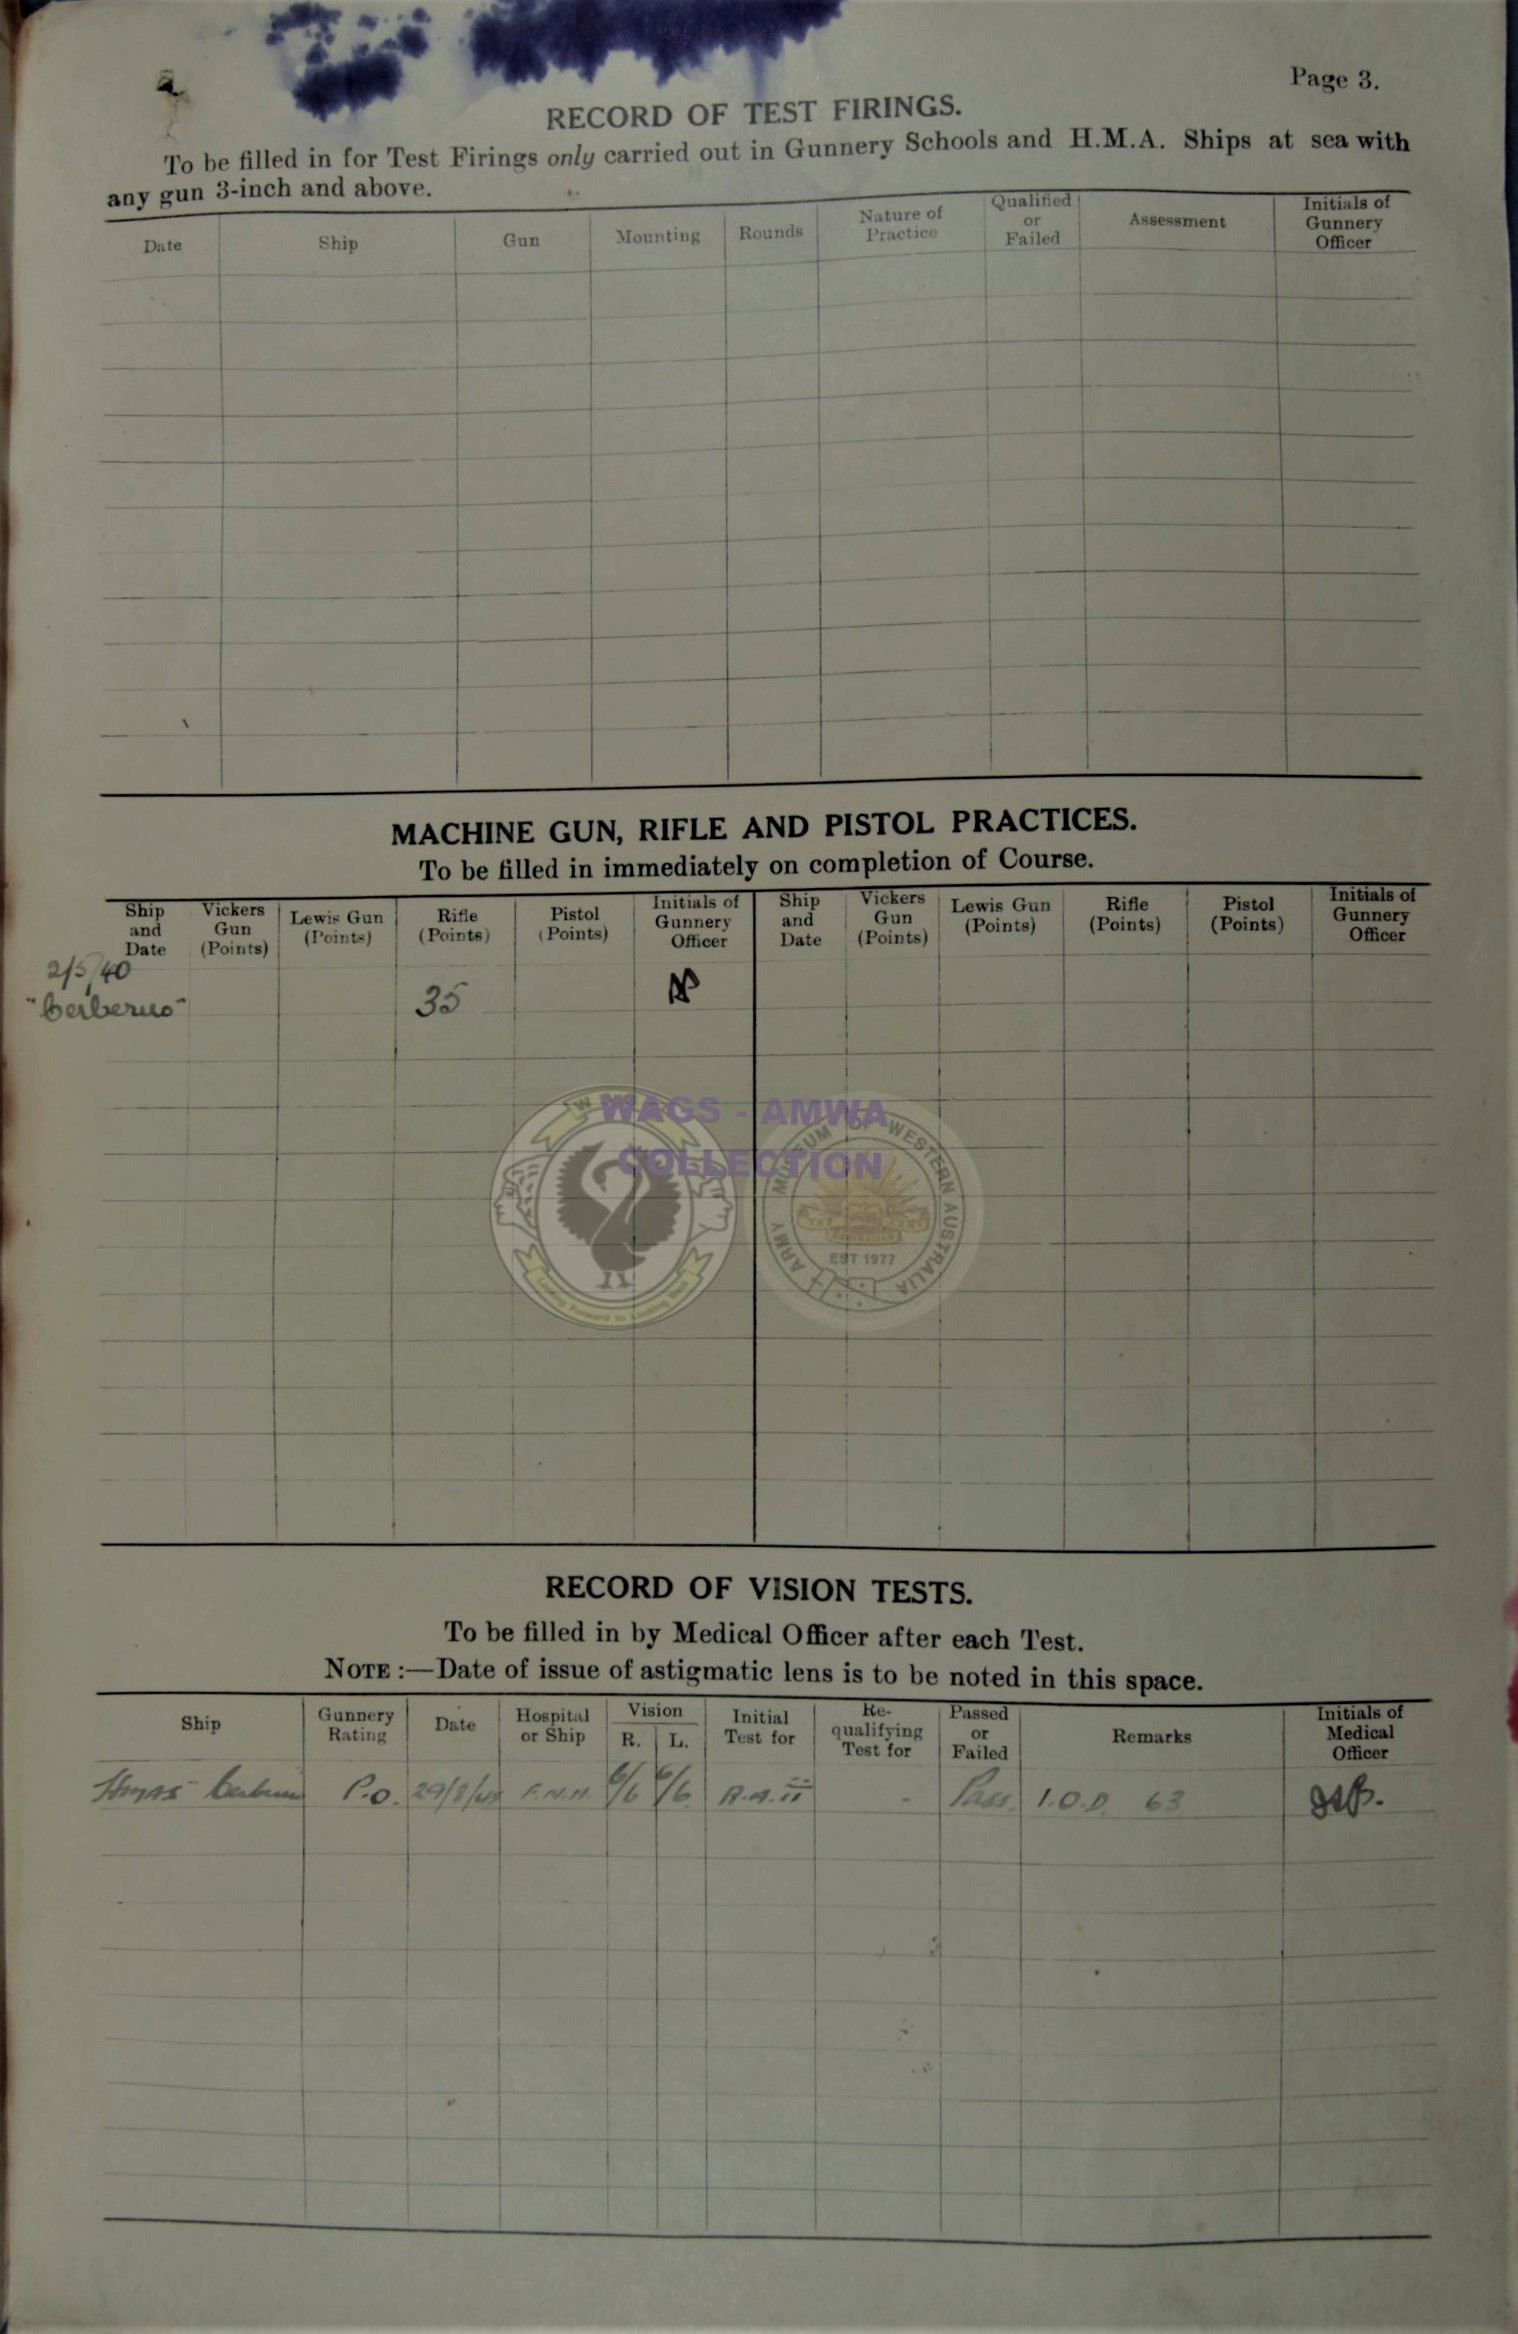 Page 3.
RECORD OF TEST FIRINGS.
To be filled in for Test Firings only carried out in Gunnery Schools and H.M.A. Ships at sea with
any gun 3-inch and above.
Date Ship Gun Mounting Rounds Nature of Practice Qualified or Failed Assessment Initials of Gunnery Officer
MACHINE GUN, RIFLE AND PISTOL PRACTICES.
To be filled in immediately on completion of Course.
Ship and Date Vickers Gun (Points) Lewis Gun (Points) Rifle (Points) Pistol (Points) Initials of Gunnery Officer Ship and Date Vickers Gun (Points) Lewis Gun (Points) Rifle (Points) Pistol (Points) Initials of Gunnery Officer
2/5/40
"Cerberus" 35
WAGS - AMWA
COLLECTION
ARMY MUSEUM OF WESTERN AUSTRALIA
EST 1977
Looking Forward to Looking Back
RECORD OF VISION TESTS.
To be filled in by Medical Officer after each Test.
NOTE :—Date of issue of astigmatic lens is to be noted in this space.
Ship Gunnery Rating Date Hospital or Ship Vision R. L. Initial Test for Re-qualifying Test for Passed or Failed Remarks Initials of Medical Officer
HMAS Cerberus P.O. F.N.H. 6/6 6/6 - Pass. I.O.D. 63